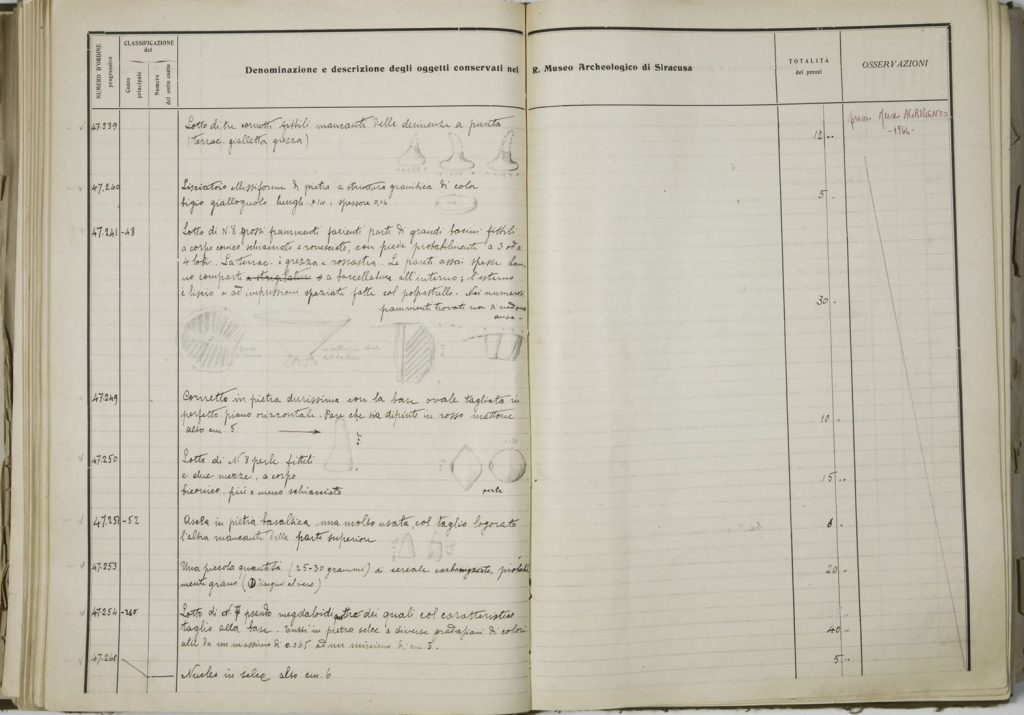 NUMERO D'ORDINE progressivo
CLASSIFICAZIONE del
Conto principale
Numero del sotto conto
Denominazione e descrizione degli oggetti conservati nel R. Museo Archeologico di Siracusa
TOTALITÀ dei prezzi
OSSERVAZIONI
47.239 Lotto di tre cornetti fittili mancanti delle desinenze a punta
(terrac. gialletta grezza) 12
Museo AGRIGENTO
1964
47.240 Lisciatoio ellissiforme di pietra a struttura granitica di color
bigio giallognolo lungh. 0,14, spessore 0,04 5
47.241-48 Lotto di N 8 grossi frammenti facienti parte di grandi bacini fittili
a corpo conico schiacciato e rovesciato, con piede probabilmente a 3 o a
4 lobi. La terrac. è grezza e rossastra. Le pareti assai spesse han-
no comparti a strigilature o a baccellature all'interno; l'esterno
è liscio o ad impressioni spaziate fatte col polpastrello. Nei numerosi
frammenti trovati non si vedono
anse. 30
47.249 Cornetto in pietra durissima con la base ovale tagliata in
perfetto piano orizzontale. Pare che sia dipinto in rosso mattone
alto cm. 5 10
47.250 Lotto di N. 8 perle fittili
e due mezze, a corpo
biconico più o meno schiacciato 15
47.251-52 Ascia in pietra basaltica, una molto usata, col taglio logorato
l'altra mancante della parte superiore 8
47.253 Una piccola quantità (25-30 grammi) di cereale carbonizzato, probabil
mente grano 20
47.254-260 Lotto di N 7 pseudo dei quali col caratteristico
taglio alla base. Tutti in pietra selce a diverse gradazioni di colori
alti da un massimo di 0.065 ad un minimo di cm. 5. 40
47.261 Nucleo in selce alto cm. 6 5